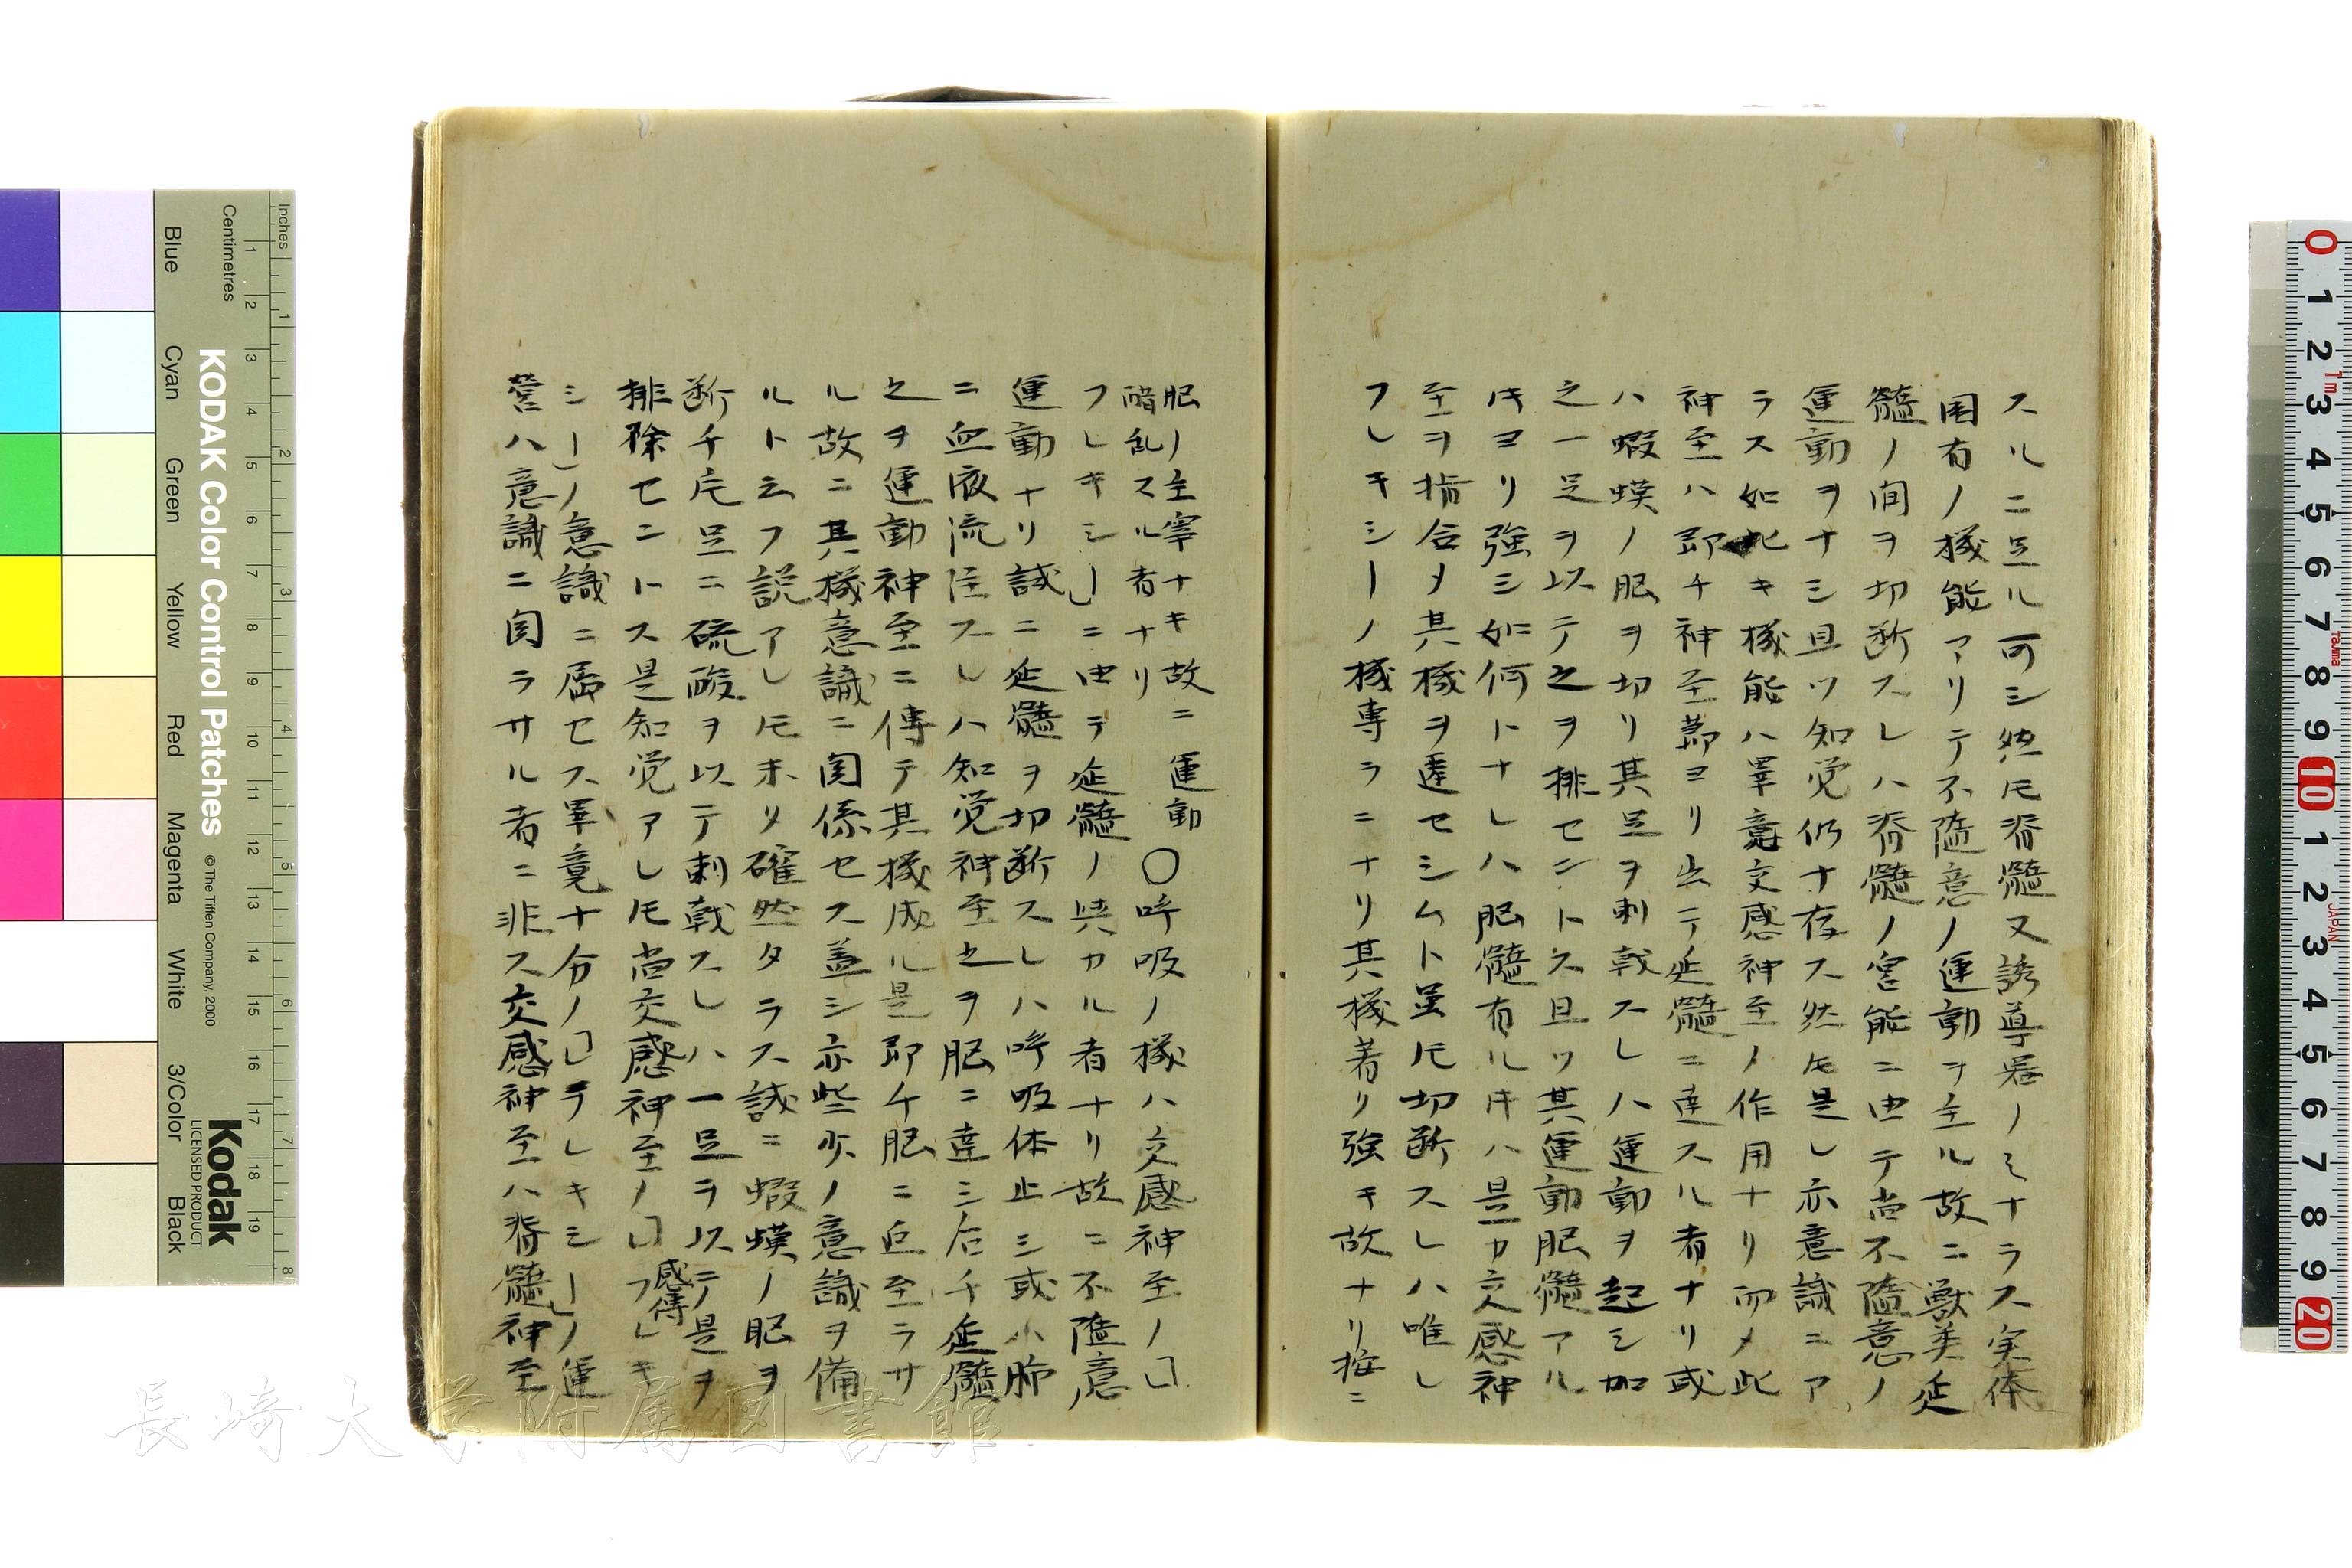 スルニ足ル可シ然𪜈脊髓又誘導器ノミナラス実体
固有ノ機能アリテ不隨意ノ運動ヲ主ル故ニ獣类延
髓ノ间ヲ切断スレハ脊髓ノ官能ニ由テ尚不隨意ノ
運動ヲナシ且ツ知覚仍ホ存ス然𪜈是レ亦意識ニア
ラス如此キ機能ハ畢竟交感神至ノ作用ナリ而メ此
神至ハ即チ神至節ヨリ出テ延髓ニ達スル者ナリ或
ハ蝦蟆ノ脳ヲ切リ其足ヲ刺戟スレハ運動ヲ起シ加
之一足ヲ以テ之ヲ排セントス且ツ其運動脳髓アル
𪜈ヨリ強シ如何トナレハ脳髓有ル𪜈ハ是カ交感神
至ヲ指合メ其機ヲ遅セシムト虽𪜈切断スレハ唯レ
フレキシーノ機専ラニナリ其機著リ強キ故ナリ推ニ
脳ノ主宰ナキ故ニ運動
錯乱スル者ナリ
〇呼吸ノ機ハ交感神至ノ「レ
フレキシー」ニ由テ延髓ノ与カル者ナリ故ニ不隨意
運動ナリ試ニ延髓ヲ切断スレハ呼吸休止シ或ハ肺
ニ血液流注スレハ知覚神至之ヲ脳ニ達シ后チ延髓
之ヲ運動神至ニ傳テ其機成ル是即チ脳ニ迄至ラサ
ル故ニ其機意識ニ関係セス蓋シ亦些少ノ意識ヲ備
ルト云フ説アレ𪜈未タ確然タラス試ニ蝦蟆ノ脳ヲ
断チ后足ニ硫酸ヲ以テ刺戟スレハ一足ヲ以テ是ヲ
排除センドス是知覚アレ𪜈尚交感神至ノ「レフレキ
感傳
シー」ノ意識ニ属セス畢竟十分ノ「レフレキシー」ノ運
営ハ意識ニ関ラサル者ニ非ス交感神至ハ脊髓神至
KODAK Color Control Patches
© The Tiffen Company, 2000
Kodak
LICENSED PRODUCT
Inches
Centimetres
Blue
Cyan
Green
Yellow
Red
Magenta
White
3/Color
Black
長崎大学附属図書館